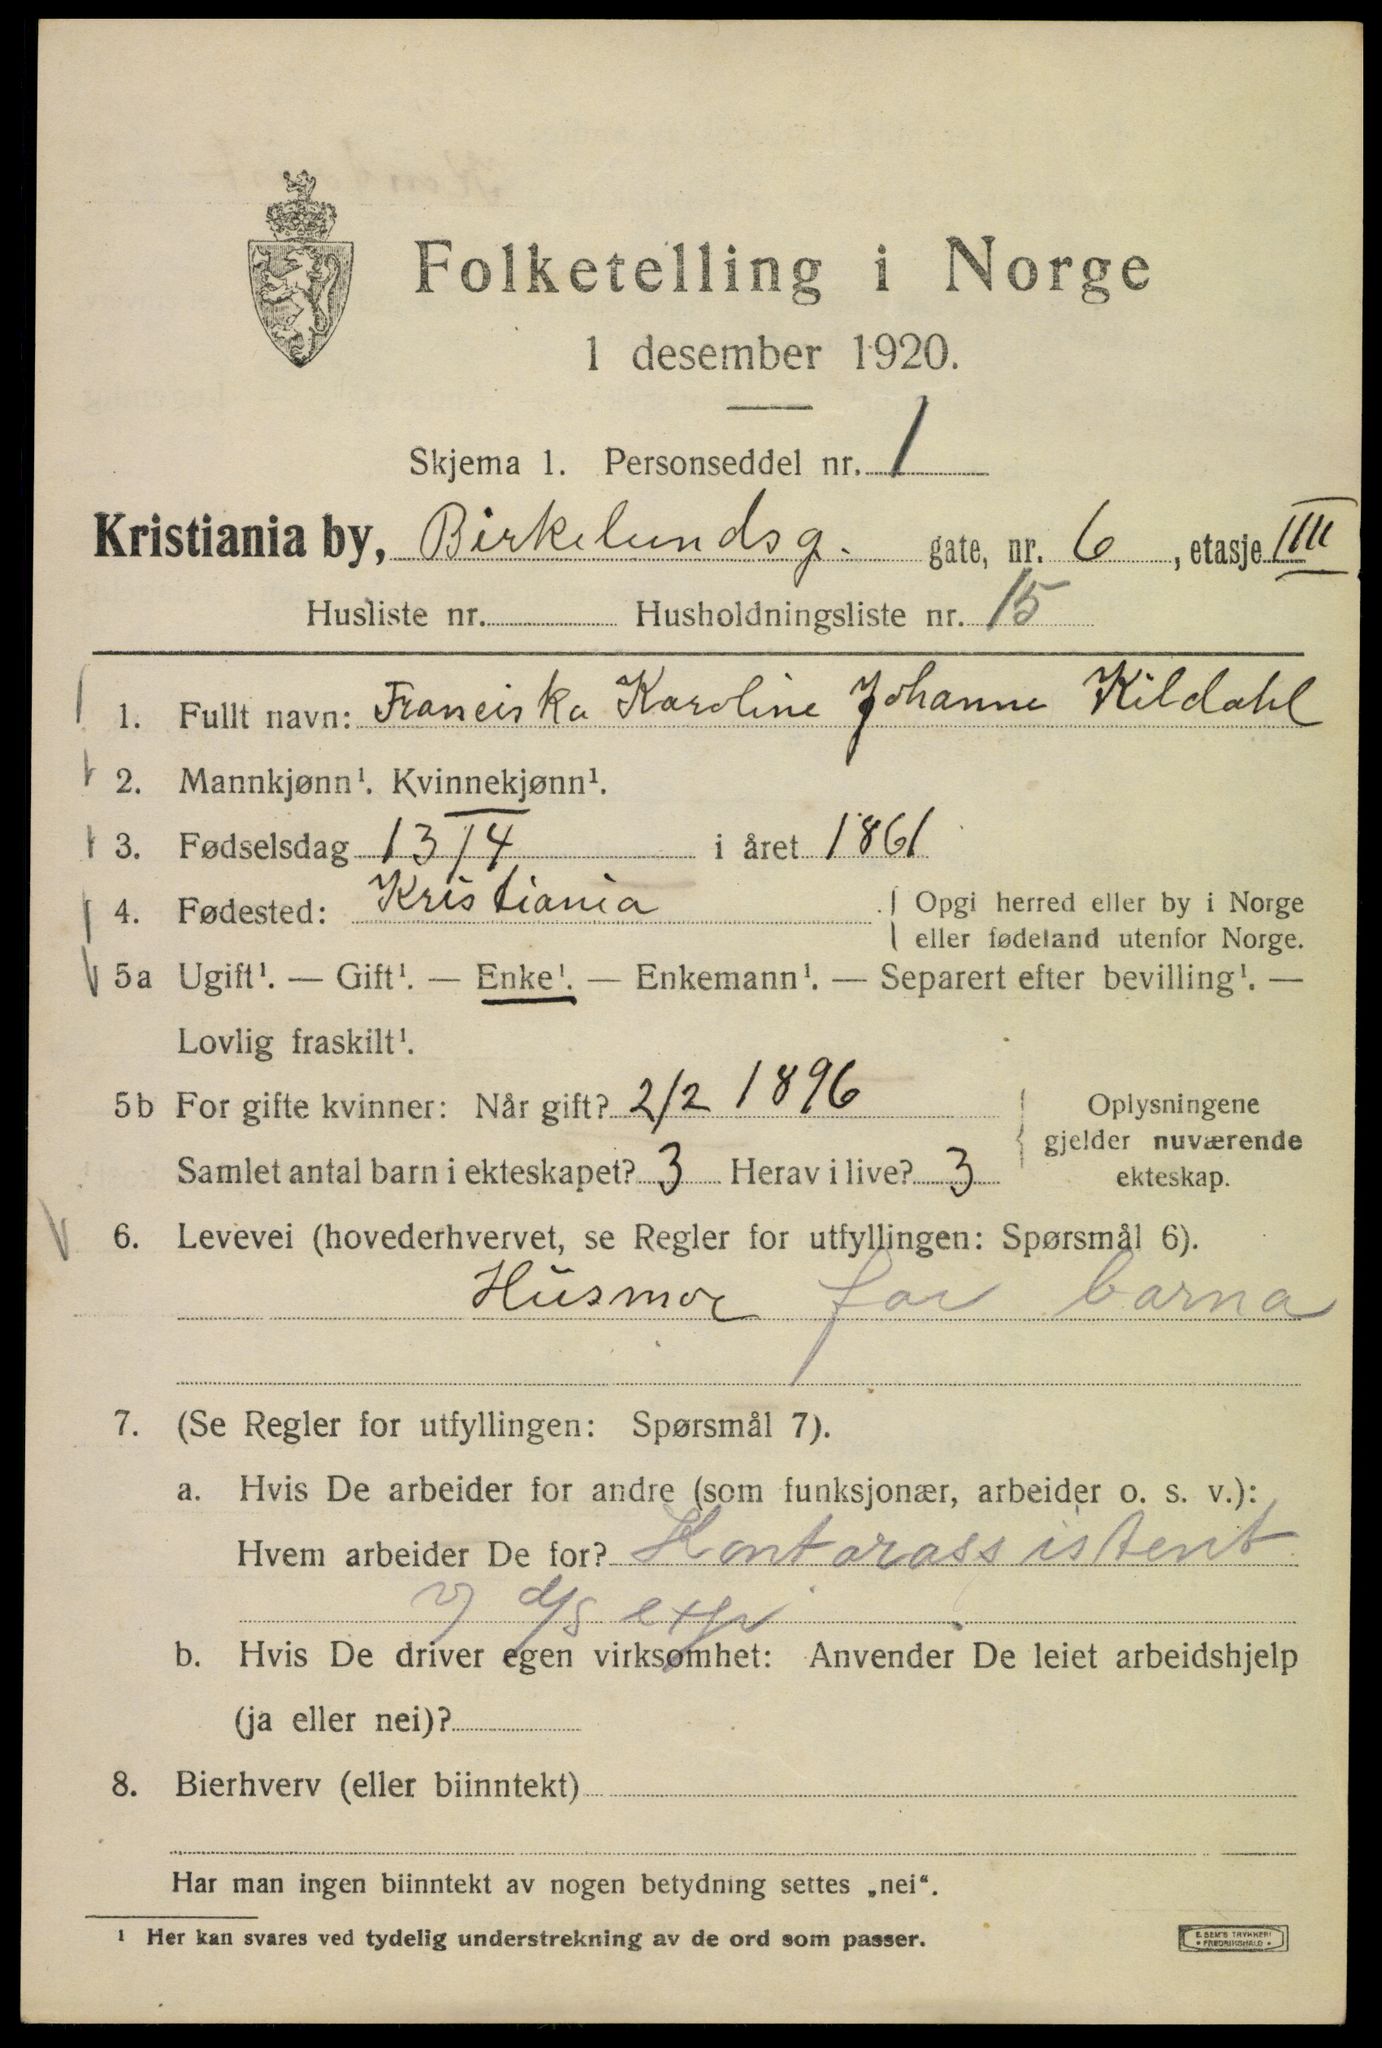 Folketelling i Norge
1 desember 1920.
Skjema 1. Personseddel nr. 1
Kristiania by, Birkelundsg. gate, nr. 6, etasje IIII
Husliste nr. Husholdningsliste nr. 15
1. Fullt navn: Franciska Karoline Johanne Kildahl
2. Mannkjønn¹. Kvinnekjønn¹.
3. Fødselsdag 13/4 i året 1861
4. Fødested: Kristiania Opgi herred eller by i Norge
eller fødeland utenfor Norge.
5a Ugift¹. — Gift¹. — Enke¹. — Enkemann¹. — Separert efter bevilling¹. —
Lovlig fraskilt¹.
5b For gifte kvinner: Når gift? 2/2 1896
Samlet antal barn i ekteskapet? 3 Herav i live? 3
Oplysningene
gjelder nuværende
ekteskap.
6. Levevei (hovederhvervet, se Regler for utfyllingen: Spørsmål 6).
Husmor for barna
7. (Se Regler for utfyllingen: Spørsmål 7).
a. Hvis De arbeider for andre (som funksjonær, arbeider o. s. v.):
Hvem arbeider De for? Kontorassistent
v/ d/s exp
b. Hvis De driver egen virksomhet: Anvender De leiet arbeidshjelp
(ja eller nei)?
8. Bierhverv (eller biinntekt)
Har man ingen biinntekt av nogen betydning settes „nei“.
¹ Her kan svares ved tydelig understrekning av de ord som passer.
E. SEM'S TRYKKERI
• FREDRIKSHALD •